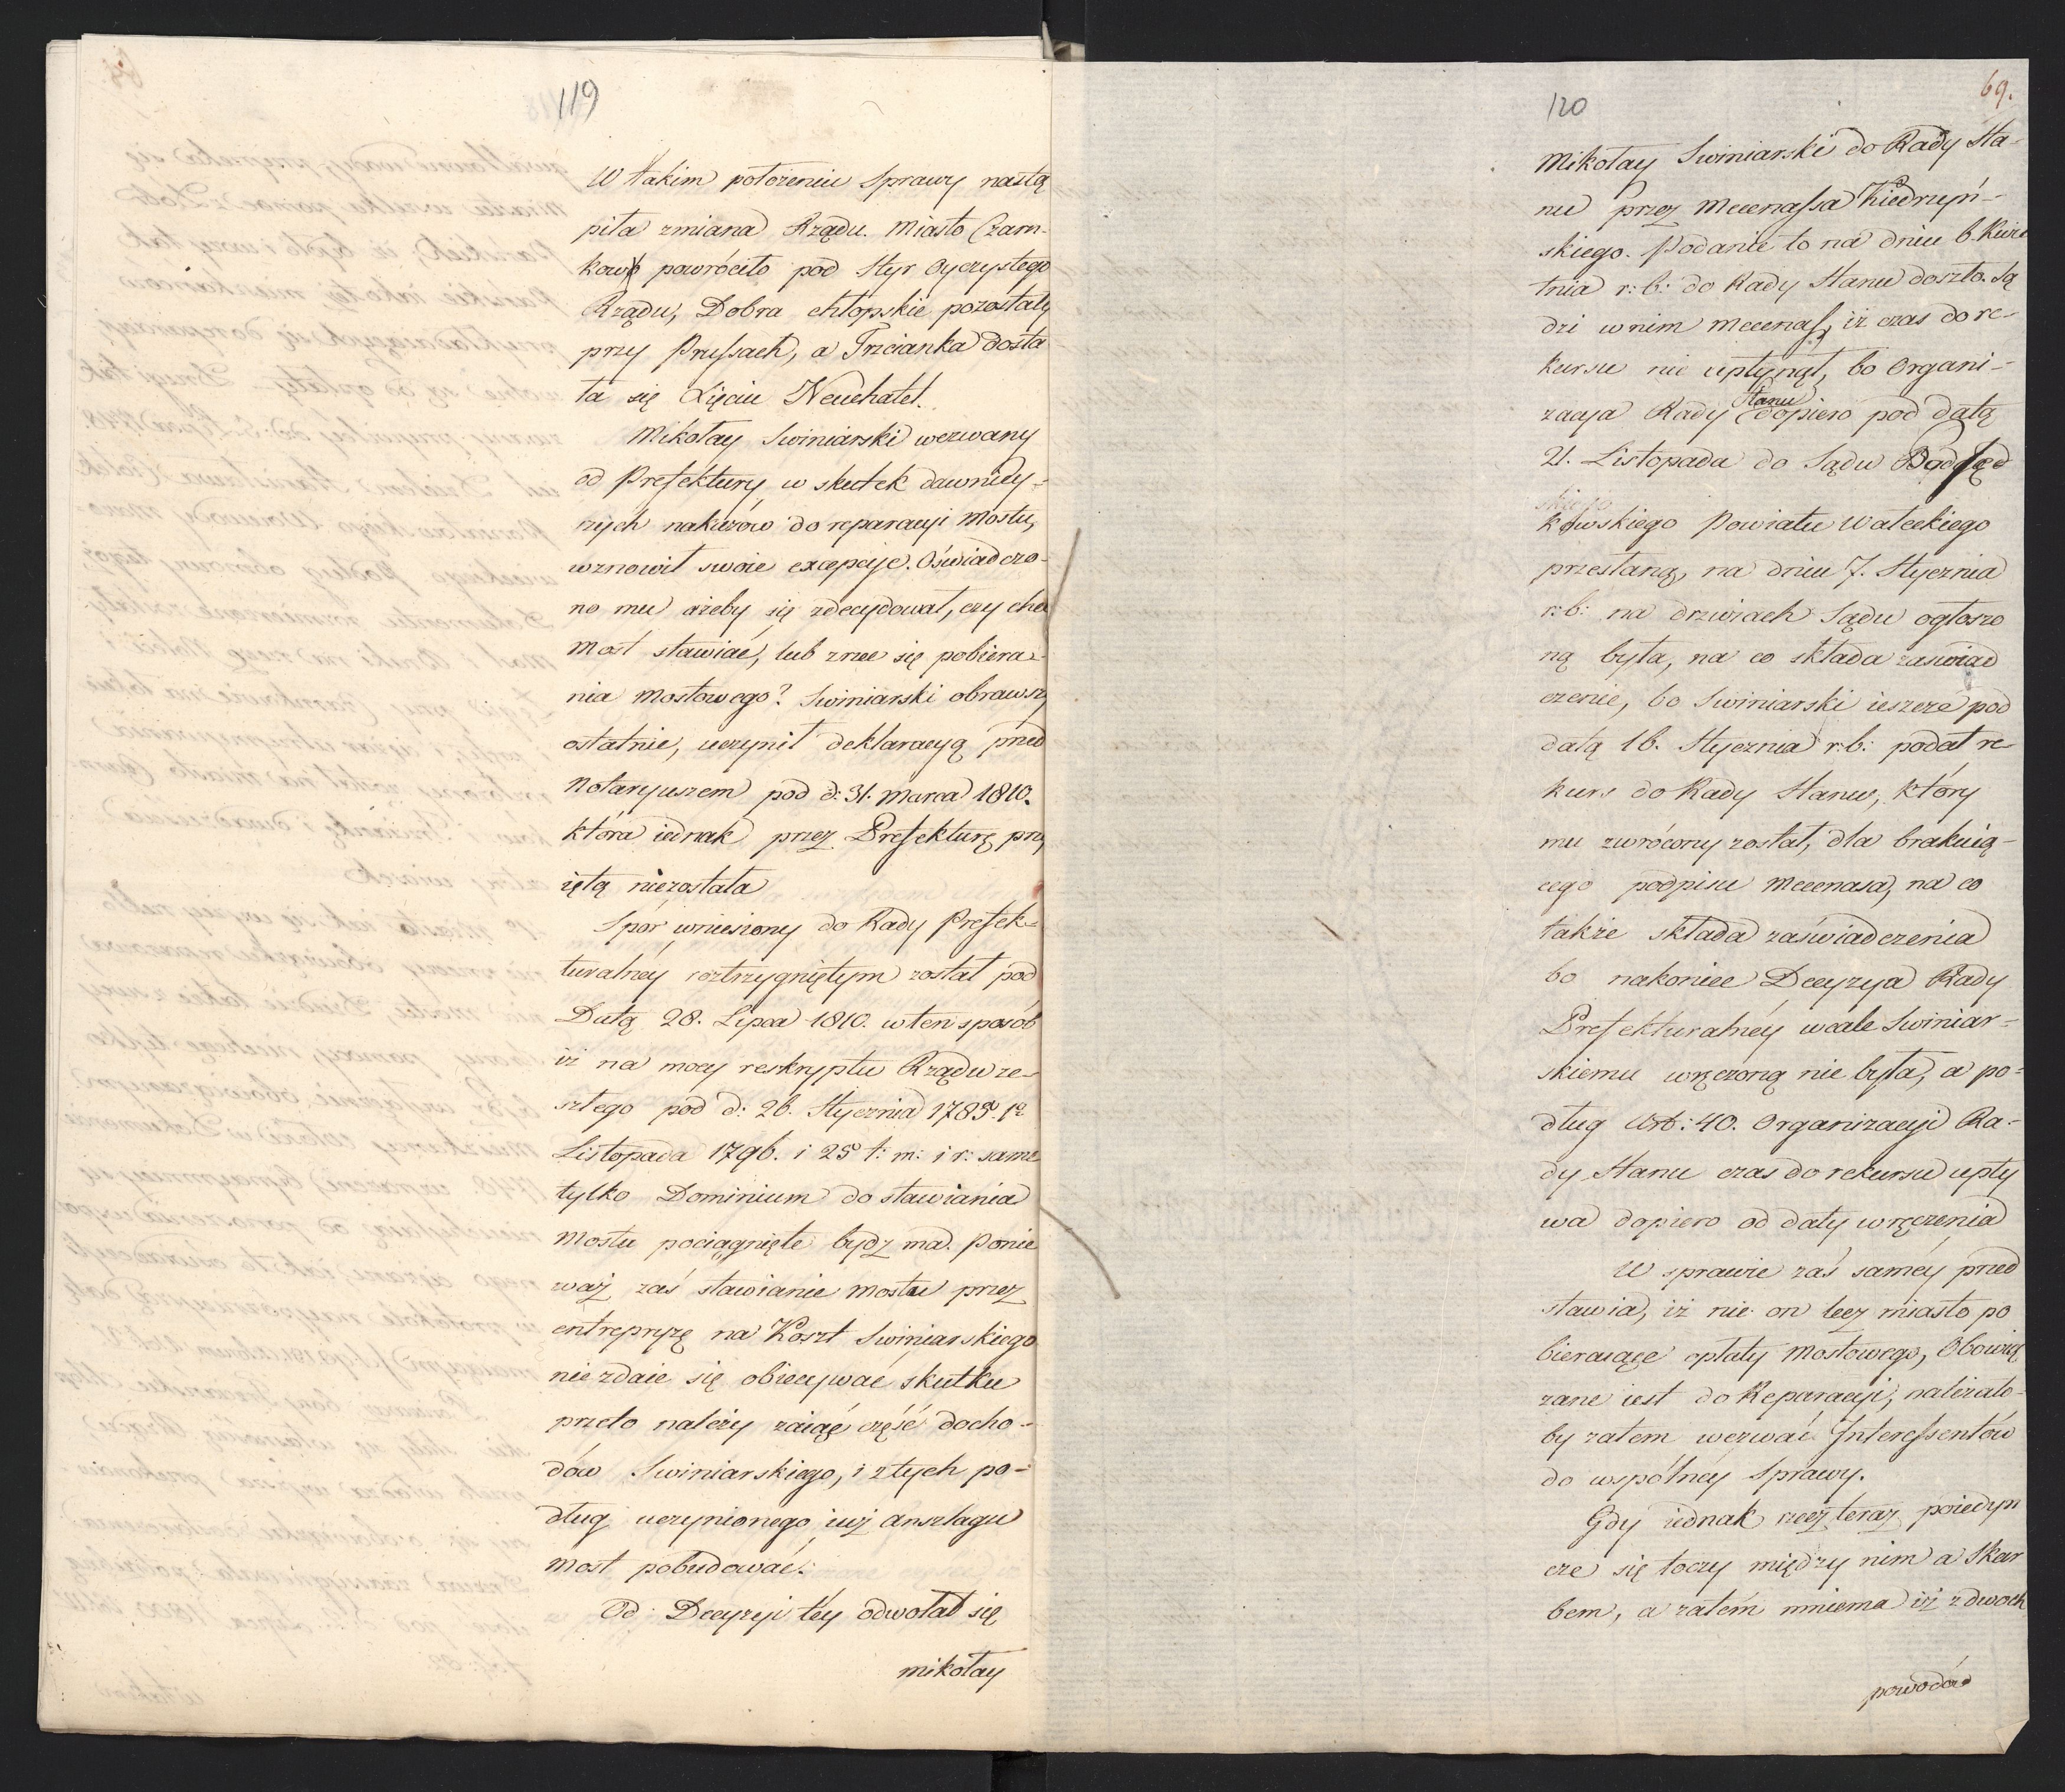 119
W takim położeniu sprawy nastą
piła zmiana Rządu. Miasto Czarn-
kow powróciło pod styr oyczystego
Rządu, Dobra chłopskie pozostały
przy Prussach, a Trzcianka dosta
ła się Xięciu Neuchatel.
Mikołay Swiniarski wezwany
od Prefektury w skutek dawniey-
szych nakazów do reparacyi mostu,
wznowił swoie excepcye. Oświadczo-
no mu ażeby się zdecydował, czy chce
most stawiać, lub zrzec się pobiera-
nia mostowego? Swiniarski obrawszy
ostatnie, uczynił deklaracyą przed
Notaryuszem pod d: 31. Marca 1810.
która iednak przez Prefekturę przy
iętą niezostała
Spor wniesiony do Rady Prefek-
turalnéy roztrzygniętym został pod
Datą 28. Lipca 1810. w ten sposób
iż na mocy reskryptu Rządu ze-
szłego pod d: 26. Stycznia 1789. 1º
Listopada 1796. i 25º t: m: i r: samo
tylko Dominium do stawiania
Mostu pociągnięte bydz ma. Ponie
waż zaś stawianie mostu przez
entrepryzę na Koszt Swiniarskiego
nie zdaie się obiecywać skutku
przeto należy zaiąć część docho-
dów Swiniarskiego, i z tych po-
dług uczynionego iuż anszlagu
most pobudować.
Od Decyzyi téy odwołał się
mikołay
120
69.
Mikołay Swiniarski do Rady Sta-
nu przez Mecenassa Kiedrzyń-
skiego. Podanie to na dniu 6. Kwie
tnia r: b: do Rady Stanu doszło. Są
dzi w nim Mecenass, iż czas do re-
kursu nie upłynął, bo Organi-
zacya Rady Stanu dopiero pod datą
21. Listopada do Sądu
Powiatu Wałeckiego
przesłaną, na dniu 7. Stycznia
r: b: na drzwiach Sądu ogłoszo
ną była, na co składa zaswiad
czenie, bo Swiniarski ieszcze pod
datą 16. Stycznia r: b: podał re-
kurs do Rady Stanu, który
mu zwrócony został, dla brakuią-
cego podpisu Mecenasa, na co
także składa zaświadczenia
bo nakoniec Decyzya Rady
Prefekturalnéy wcale Swiniar-
skiemu wręczoną nie była, a po-
dług Art: 40. Organizacyi Ra-
dy Stanu czas do rekursu upły
wa dopiero od daty wręczenia
W sprawie zaś saméy przed
stawia, iż nie on lecz miasto po
bieraiące opłaty mostowego, Obowią
zane iest do Reparacyi, należało-
by zatem wezwać Interessentów
do wspólnéy Sprawy.
Gdy iednak rzecz teraz poiedyn
cze się toczy między nim a Skar
bem, a zatém mniema iż z dwoch
powodów